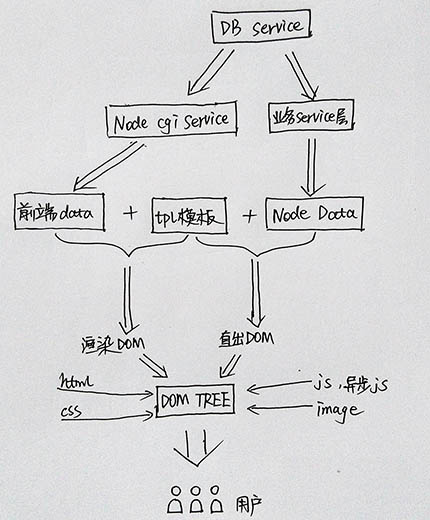 DB service
Node cgi Service
业务service层
前端data + tpl模板 + Node Data
渲染DOM
直出DOM
html
css
DOM TREE
js,异步js
image
用户